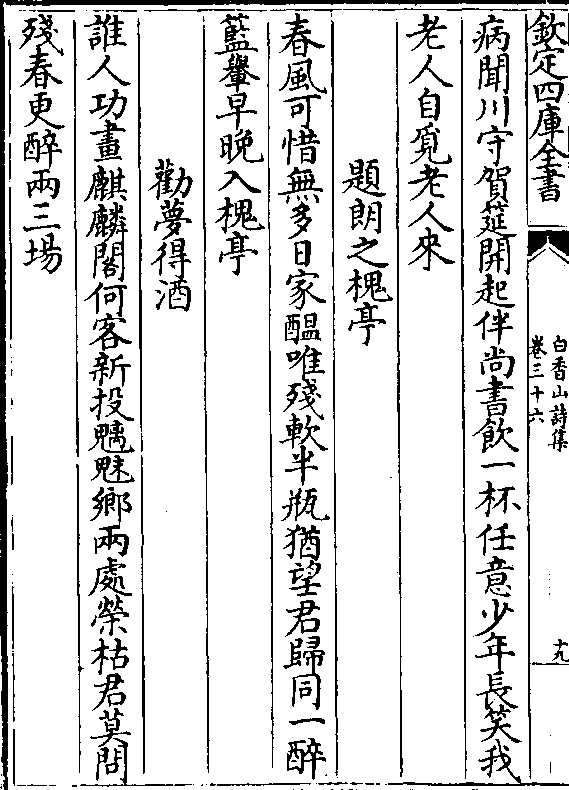 欽定四庫全書
白香山詩集
卷三十六
十九
病聞川守賀筵開起伴尚書飲一杯任意少年長笑我
老人自覓老人來
題朗之槐亭
春風可惜無多日家醖唯殘軟半瓶猶望君歸同一醉
籃轝早晚入槐亭
勸夢得酒
誰人功畫麒麟閣何客新投魑魅鄉兩處榮枯君莫問
殘春更醉兩三場